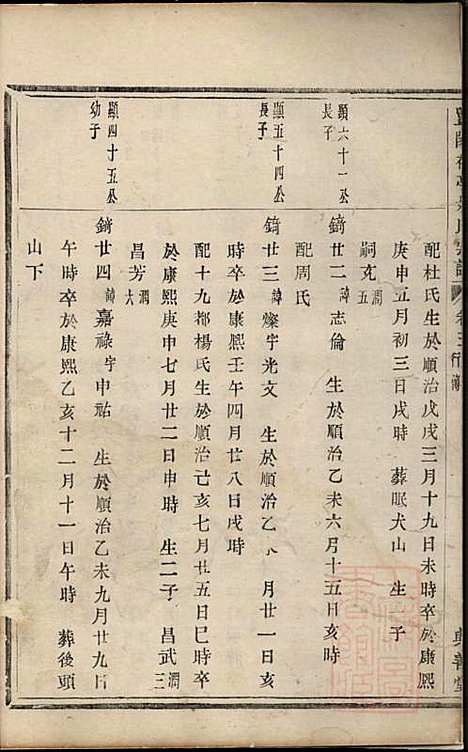 卷三行傳
配杜氏生於順治戊戌三月十九日未時卒於康熙
庚申五月初三日戌時 葬眠犬山 生子
嗣文潤五
顯六十一公長子
錡廿二諱志倫 生於順治乙未六月十五日亥時
配周氏
顯五十四公長子
錡廿三諱燦字光文 生於順治乙 月廿一日亥
時卒於康熙壬午四月廿八日戌時
配十九都楊氏生於順治亡亥七月廿五日巳時卒
於康熙庚申七月廿二日申時 生二子 昌武潤三
昌芳潤六
顯四十五公幼子
錡廿四諱嘉祿字申祐 生於順治乙未九月廿九日
午時卒於康熙乙亥十二月十一日午時 葬後頭
山下